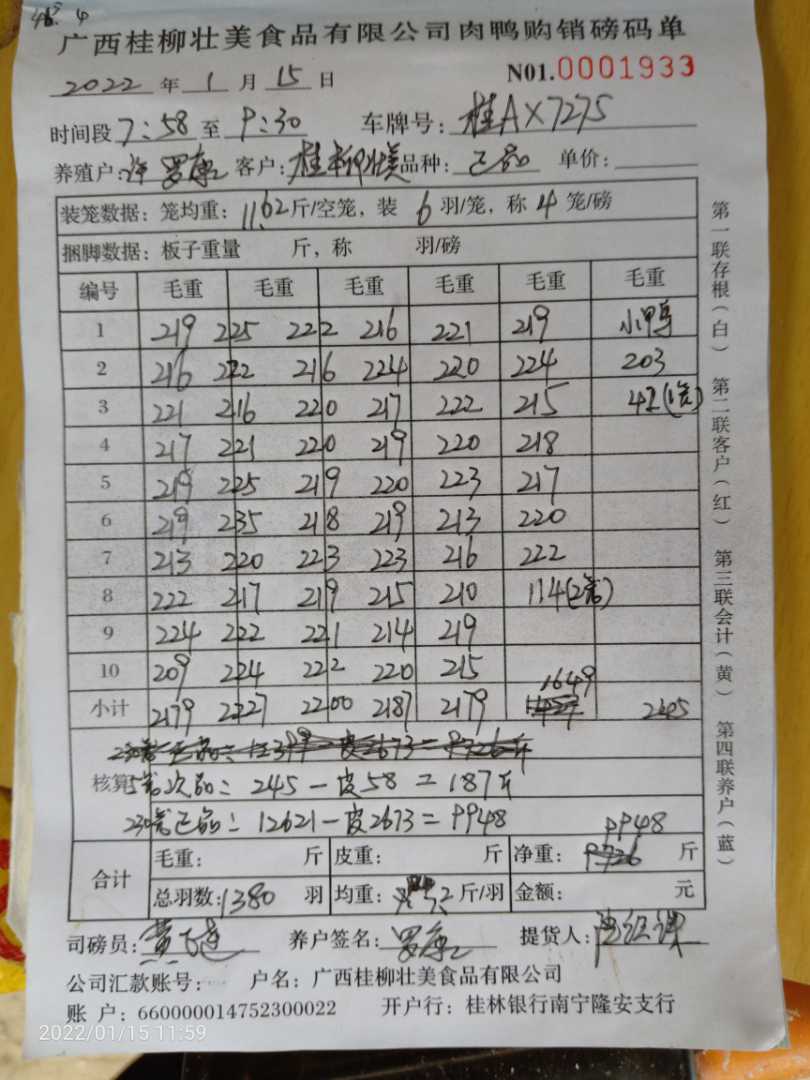 广西桂柳壮美食品有限公司肉鸭购销磅码单
2022年1月15日 N01.0001933
时间段7:58至9:30 车牌号:桂AX7275
养殖户:许 罗康 客户:桂柳壮美 品种: 正品 单价:
装笼数据: 笼均重: 11.62斤/空笼, 装 6 羽/笼, 称 4 笼/磅
捆脚数据: 板子重量 斤, 称 羽/磅
编号 毛重 毛重 毛重 毛重 毛重 毛重
1 219 225 222 216 221 219 小鸭
2 216 222 216 224 220 224 203
3 221 216 220 217 222 215 42(1笼)
4 217 221 220 219 220 218
5 219 225 219 220 223 217
6 219 235 218 219 213 220
7 213 220 223 223 216 222
8 222 217 219 215 210 114(2笼)
9 224 222 221 214 219
10 209 224 222 220 215 1649
小计 2179 2227 2200 2187 2179 245
核算 5笼次品: 245-皮58=187斤
230笼正品: 12621-皮2673=9948
9948
合计 毛重: 斤 皮重: 斤 净重: 斤
总羽数: 1380 羽 均重: 斤/羽 金额: 元
司磅员: 养户签名: 罗康 提货人:
公司汇款账号: 户名: 广西桂柳壮美食品有限公司
账 户: 660000014752300022 开户行: 桂林银行南宁隆安支行
2022/01/15 11:59
第一联存根(白) 第二联客户(红) 第三联会计(黄) 第四联养户(蓝)